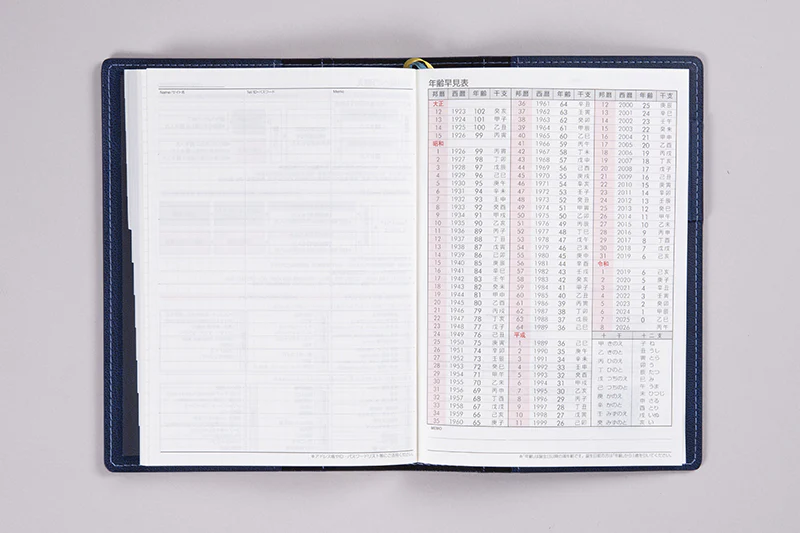 Name/サイト名 Memo
年齢早見表
邦暦 西暦 年齢 干支
大正
12 1923 102 癸亥
13 1924 101 甲子
14 1925 100 乙丑
15 1926 99 丙寅
昭和
1 1926 99 丙寅
2 1927 98 丁卯
3 1928 97 戊辰
4 1929 96 己巳
5 1930 95 庚午
6 1931 94 辛未
7 1932 93 壬申
8 1933 92 癸酉
9 1934 91 甲戌
10 1935 90 乙亥
11 1936 89 丙子
12 1937 88 丁丑
13 1938 87 戊寅
14 1939 86 己卯
15 1940 85 庚辰
16 1941 84 辛巳
17 1942 83 壬午
18 1943 82 癸未
19 1944 81 甲申
20 1945 80 乙酉
21 1946 79 丙戌
22 1947 78 丁亥
23 1948 77 戊子
24 1949 76 己丑
25 1950 75 庚寅
26 1951 74 辛卯
27 1952 73 壬辰
28 1953 72 癸巳
29 1954 71 甲午
30 1955 70 乙未
31 1956 69 丙申
32 1957 68 丁酉
33 1958 67 戊戌
34 1959 66 己亥
35 1960 65 庚子
邦暦 西暦 年齢 干支
36 1961 64 辛丑
37 1962 63 壬寅
38 1963 62 癸卯
39 1964 61 甲辰
40 1965 60 乙巳
41 1966 59 丙午
42 1967 58 丁未
43 1968 57 戊申
44 1969 56 己酉
45 1970 55 庚戌
46 1971 54 辛亥
47 1972 53 壬子
48 1973 52 癸丑
49 1974 51 甲寅
50 1975 50 乙卯
51 1976 49 丙辰
52 1977 48 丁巳
53 1978 47 戊午
54 1979 46 己未
55 1980 45 庚申
56 1981 44 辛酉
57 1982 43 壬戌
58 1983 42 癸亥
59 1984 41 甲子
60 1985 40 乙丑
61 1986 39 丙寅
62 1987 38 丁卯
63 1988 37 戊辰
64 1989 36 己巳
平成
1 1989 36 己巳
2 1990 35 庚午
3 1991 34 辛未
4 1992 33 壬申
5 1993 32 癸酉
6 1994 31 甲戌
7 1995 30 乙亥
8 1996 29 丙子
9 1997 28 丁丑
10 1998 27 戊寅
11 1999 26 己卯
邦暦 西暦 年齢 干支
12 2000 25 庚辰
13 2001 24 辛巳
14 2002 23 壬午
15 2003 22 癸未
16 2004 21 甲申
17 2005 20 乙酉
18 2006 19 丙戌
19 2007 18 丁亥
20 2008 17 戊子
21 2009 16 己丑
22 2010 15 庚寅
23 2011 14 辛卯
24 2012 13 壬辰
25 2013 12 癸巳
26 2014 11 甲午
27 2015 10 乙未
28 2016 9 丙申
29 2017 8 丁酉
30 2018 7 戊戌
31 2019 6 己亥
令和
1 2019 6 己亥
2 2020 5 庚子
3 2021 4 辛丑
4 2022 3 壬寅
5 2023 2 癸卯
6 2024 1 甲辰
7 2025 0 乙巳
8 2026 丙午
十干 十二支
甲 きのえ 子 ね
乙 きのと 丑 うし
丙 ひのえ 寅 とら
丁 ひのと 卯 う
戊 つちのえ 辰 たつ
己 つちのと 巳 み
庚 かのえ 午 うま
辛 かのと 未 ひつじ
壬 みずのえ 申 さる
癸 みずのと 酉 とり
戌 いぬ
亥 い
MEMO